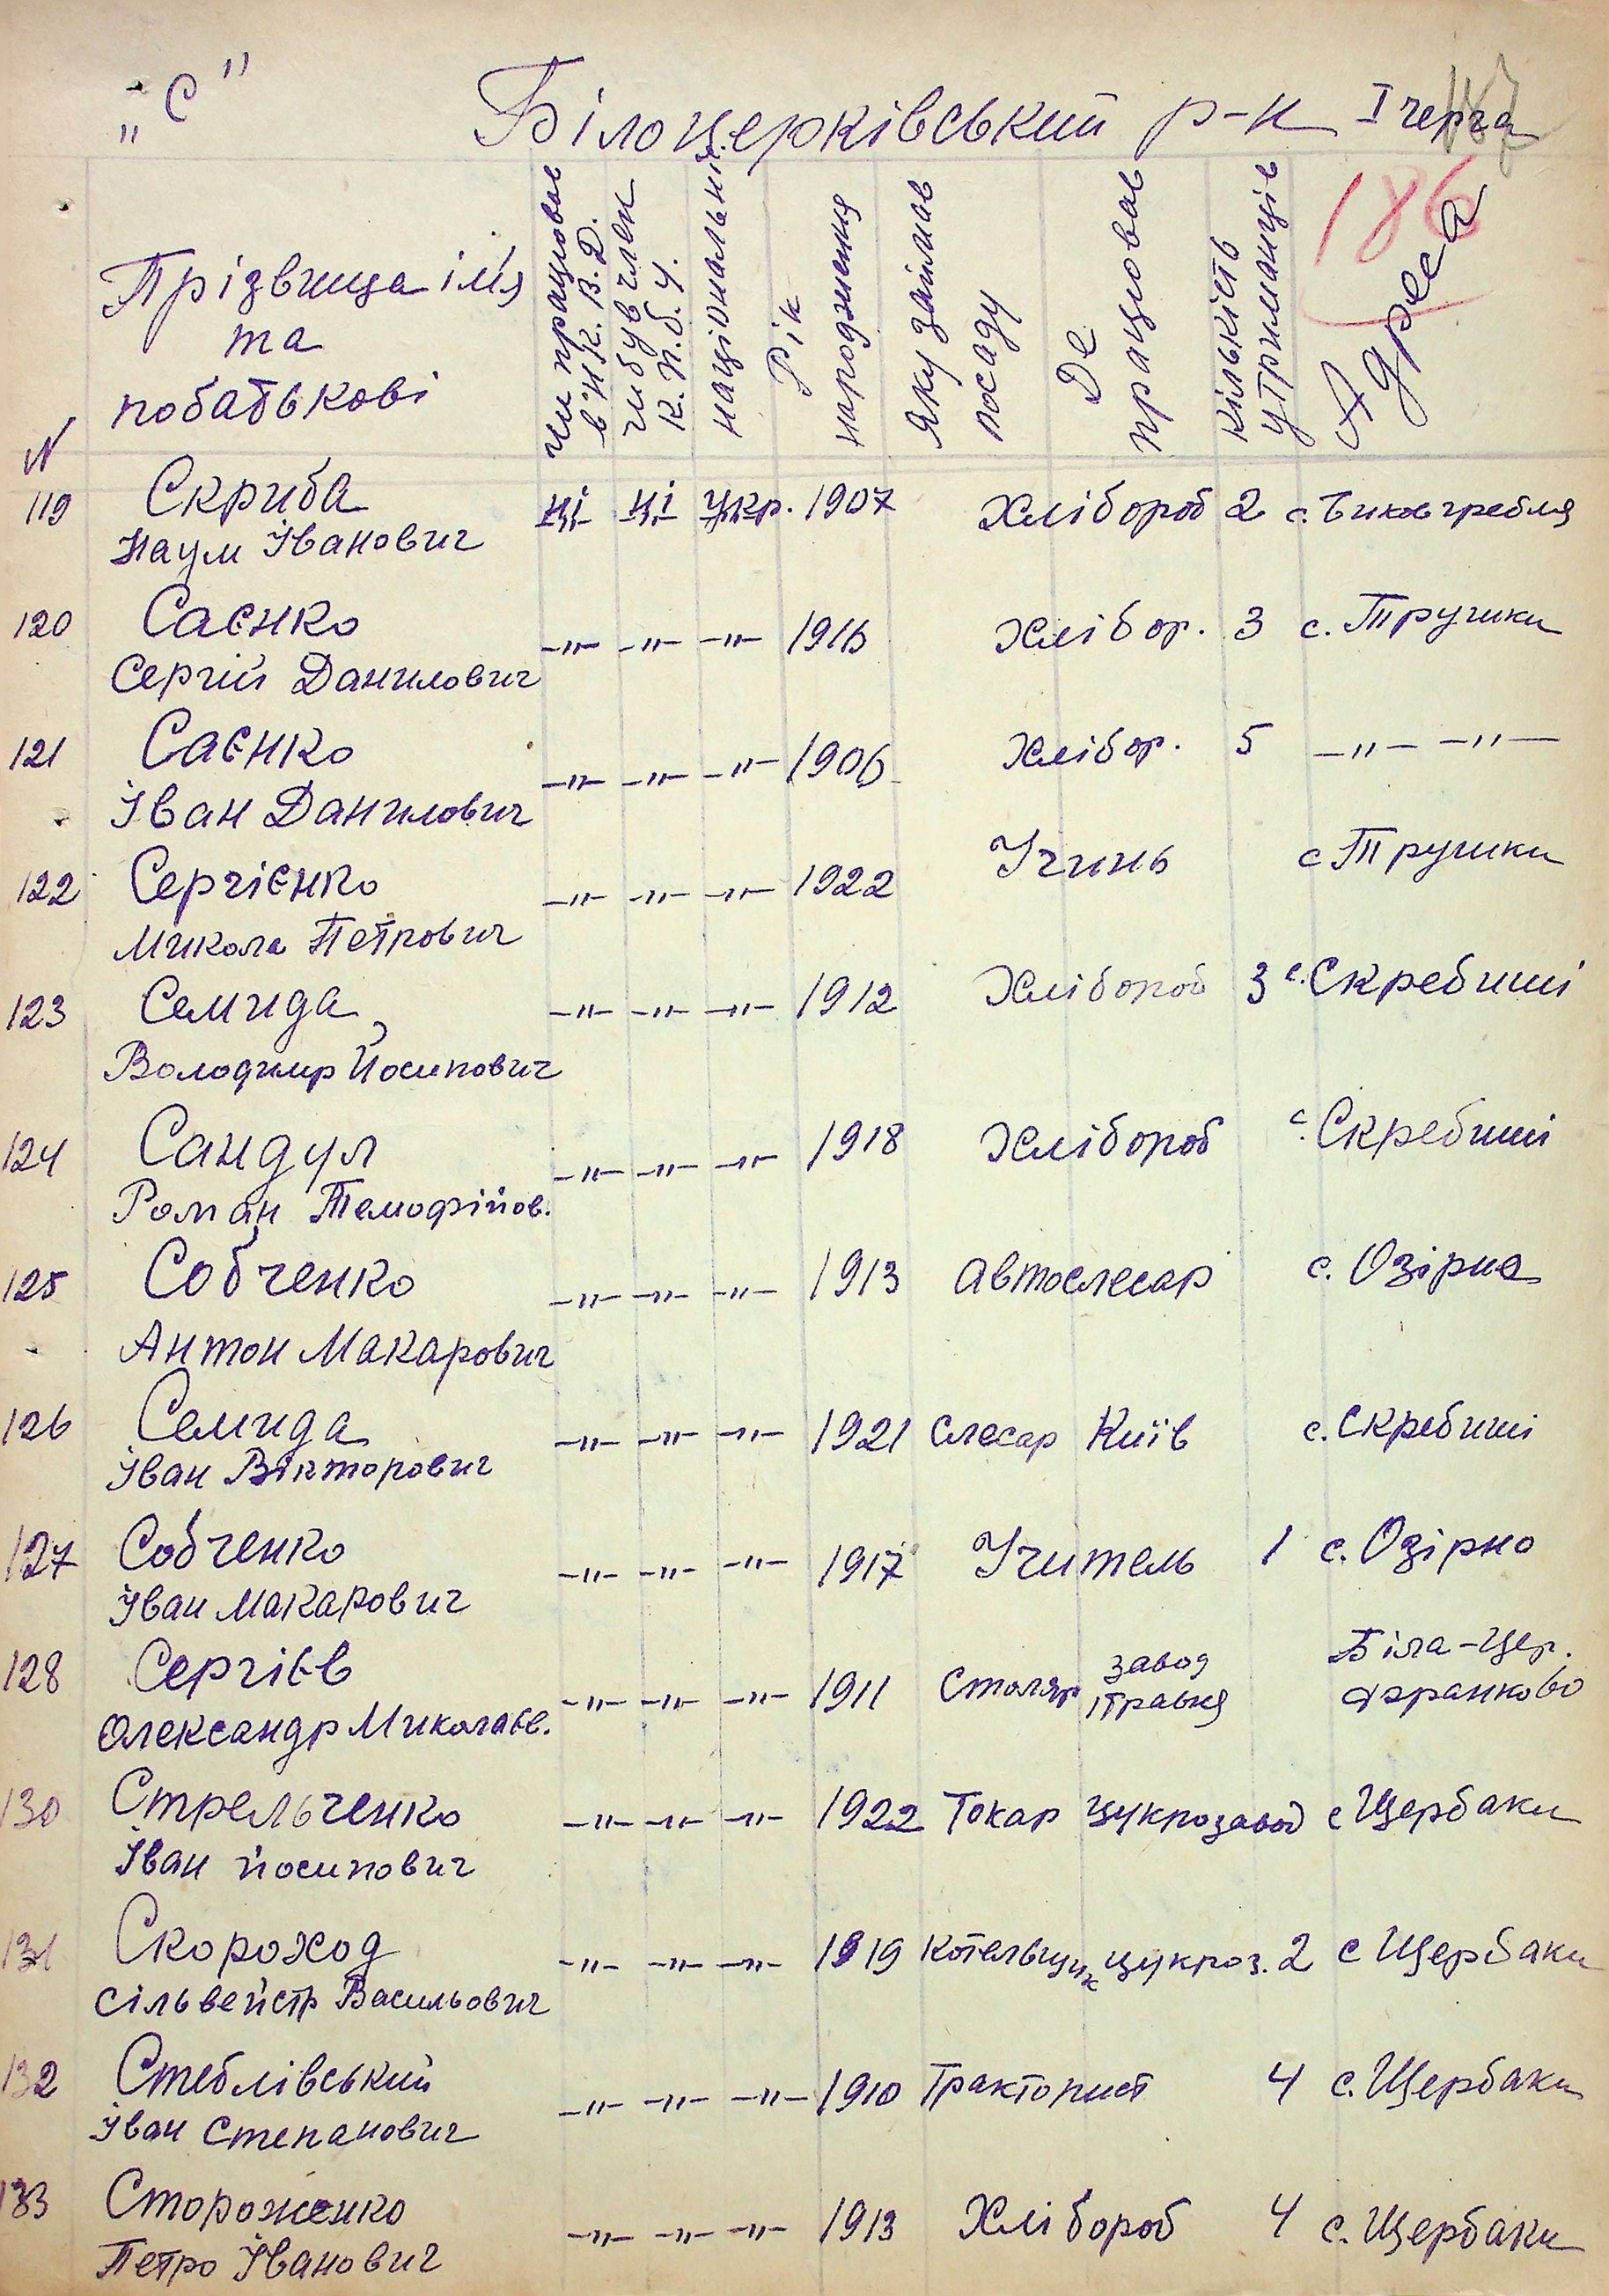 „С"
Білоцерківський р-н I черга
187
186
N
Прізвище ім'я
та
побатькові
чи працював
в Н.К.В.Д.
чи був член
К.П.б.У.
національність
Рік
народження
яку займав
посаду
Де
працював
кількість
утриманців
Адреса
119 Скриба ні ні укр. 1907 Хлібороб 2 с. Бикова гребля
Наум Іванович
120 Саєнко —„— —„— —„— 1916 Хлібор. 3 с. Трушки
Сергій Данилович
121 Саєнко —„— —„— —„— 1906 Хлібор. 5 —„— —„—
Іван Данилович
122 Сергієнко —„— —„— —„— 1922 Учинь с Трушки
Микола Петрович
123 Семида —„— —„— —„— 1912 Хлібороб 3 с. Скребиші
Володимир Йосипович
124 Сандул —„— —„— —„— 1918 Хлібороб с. Скребиші
Роман Темофійов.
125 Собченко —„— —„— —„— 1913 Автослесар с. Озірна
Антон Макарович
126 Семида —„— —„— —„— 1921 Слесар Київ с. Скребиші
Іван Вікторович
127 Собченко —„— —„— —„— 1917 Учитель 1 с. Озірно
Іван Макарович
128 Сергієв —„— —„— —„— 1911 Столяр завод ІТравня Біла-Цер. Франково
Олександр Миколаєв.
130 Стрельченко —„— —„— —„— 1922 Токар цукрозавод с Щербаки
Іван Йосипович
131 Скороход —„— —„— —„— 1919 Котельщик цукроз. 2 с Щербаки
Сільвейстр Васильович
132 Стеблівський —„— —„— —„— 1910 Тракторист 4 с. Щербаки
Іван Степанович
133 Стороженко —„— —„— —„— 1913 Хлібороб 4 с. Щербаки
Петро Іванович